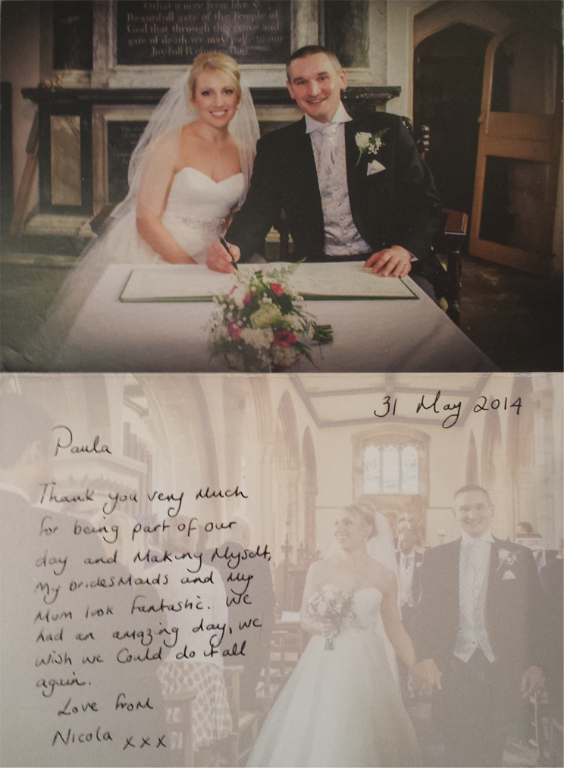 Beautifull gate of the Temple of
God that through this grave and
gate of death we may passe to our
Joyfull Resurrection
31 May 2014
Paula
Thank you very much
for being part of our
day and making myself,
my bridesmaids and my
mum look fantastic. We
had an amazing day, we
wish we could do it all
again.
Love from
Nicola xxx